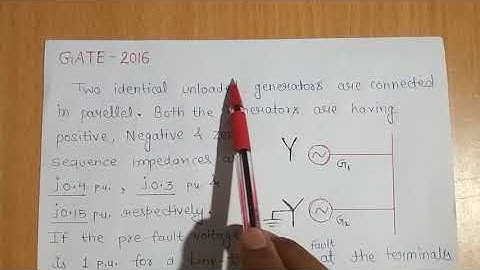 GATE-2016
Two identical unloaded generators are connected
in parellel. Both the generators are having
positive, Negative &
sequence impedances
j0.4 p.u. , j0.3 p.u &
j0.15 p.u. respectively.
If the pre-fault voltage
is 1 p.u. for a fault at the terminals
G1
G2